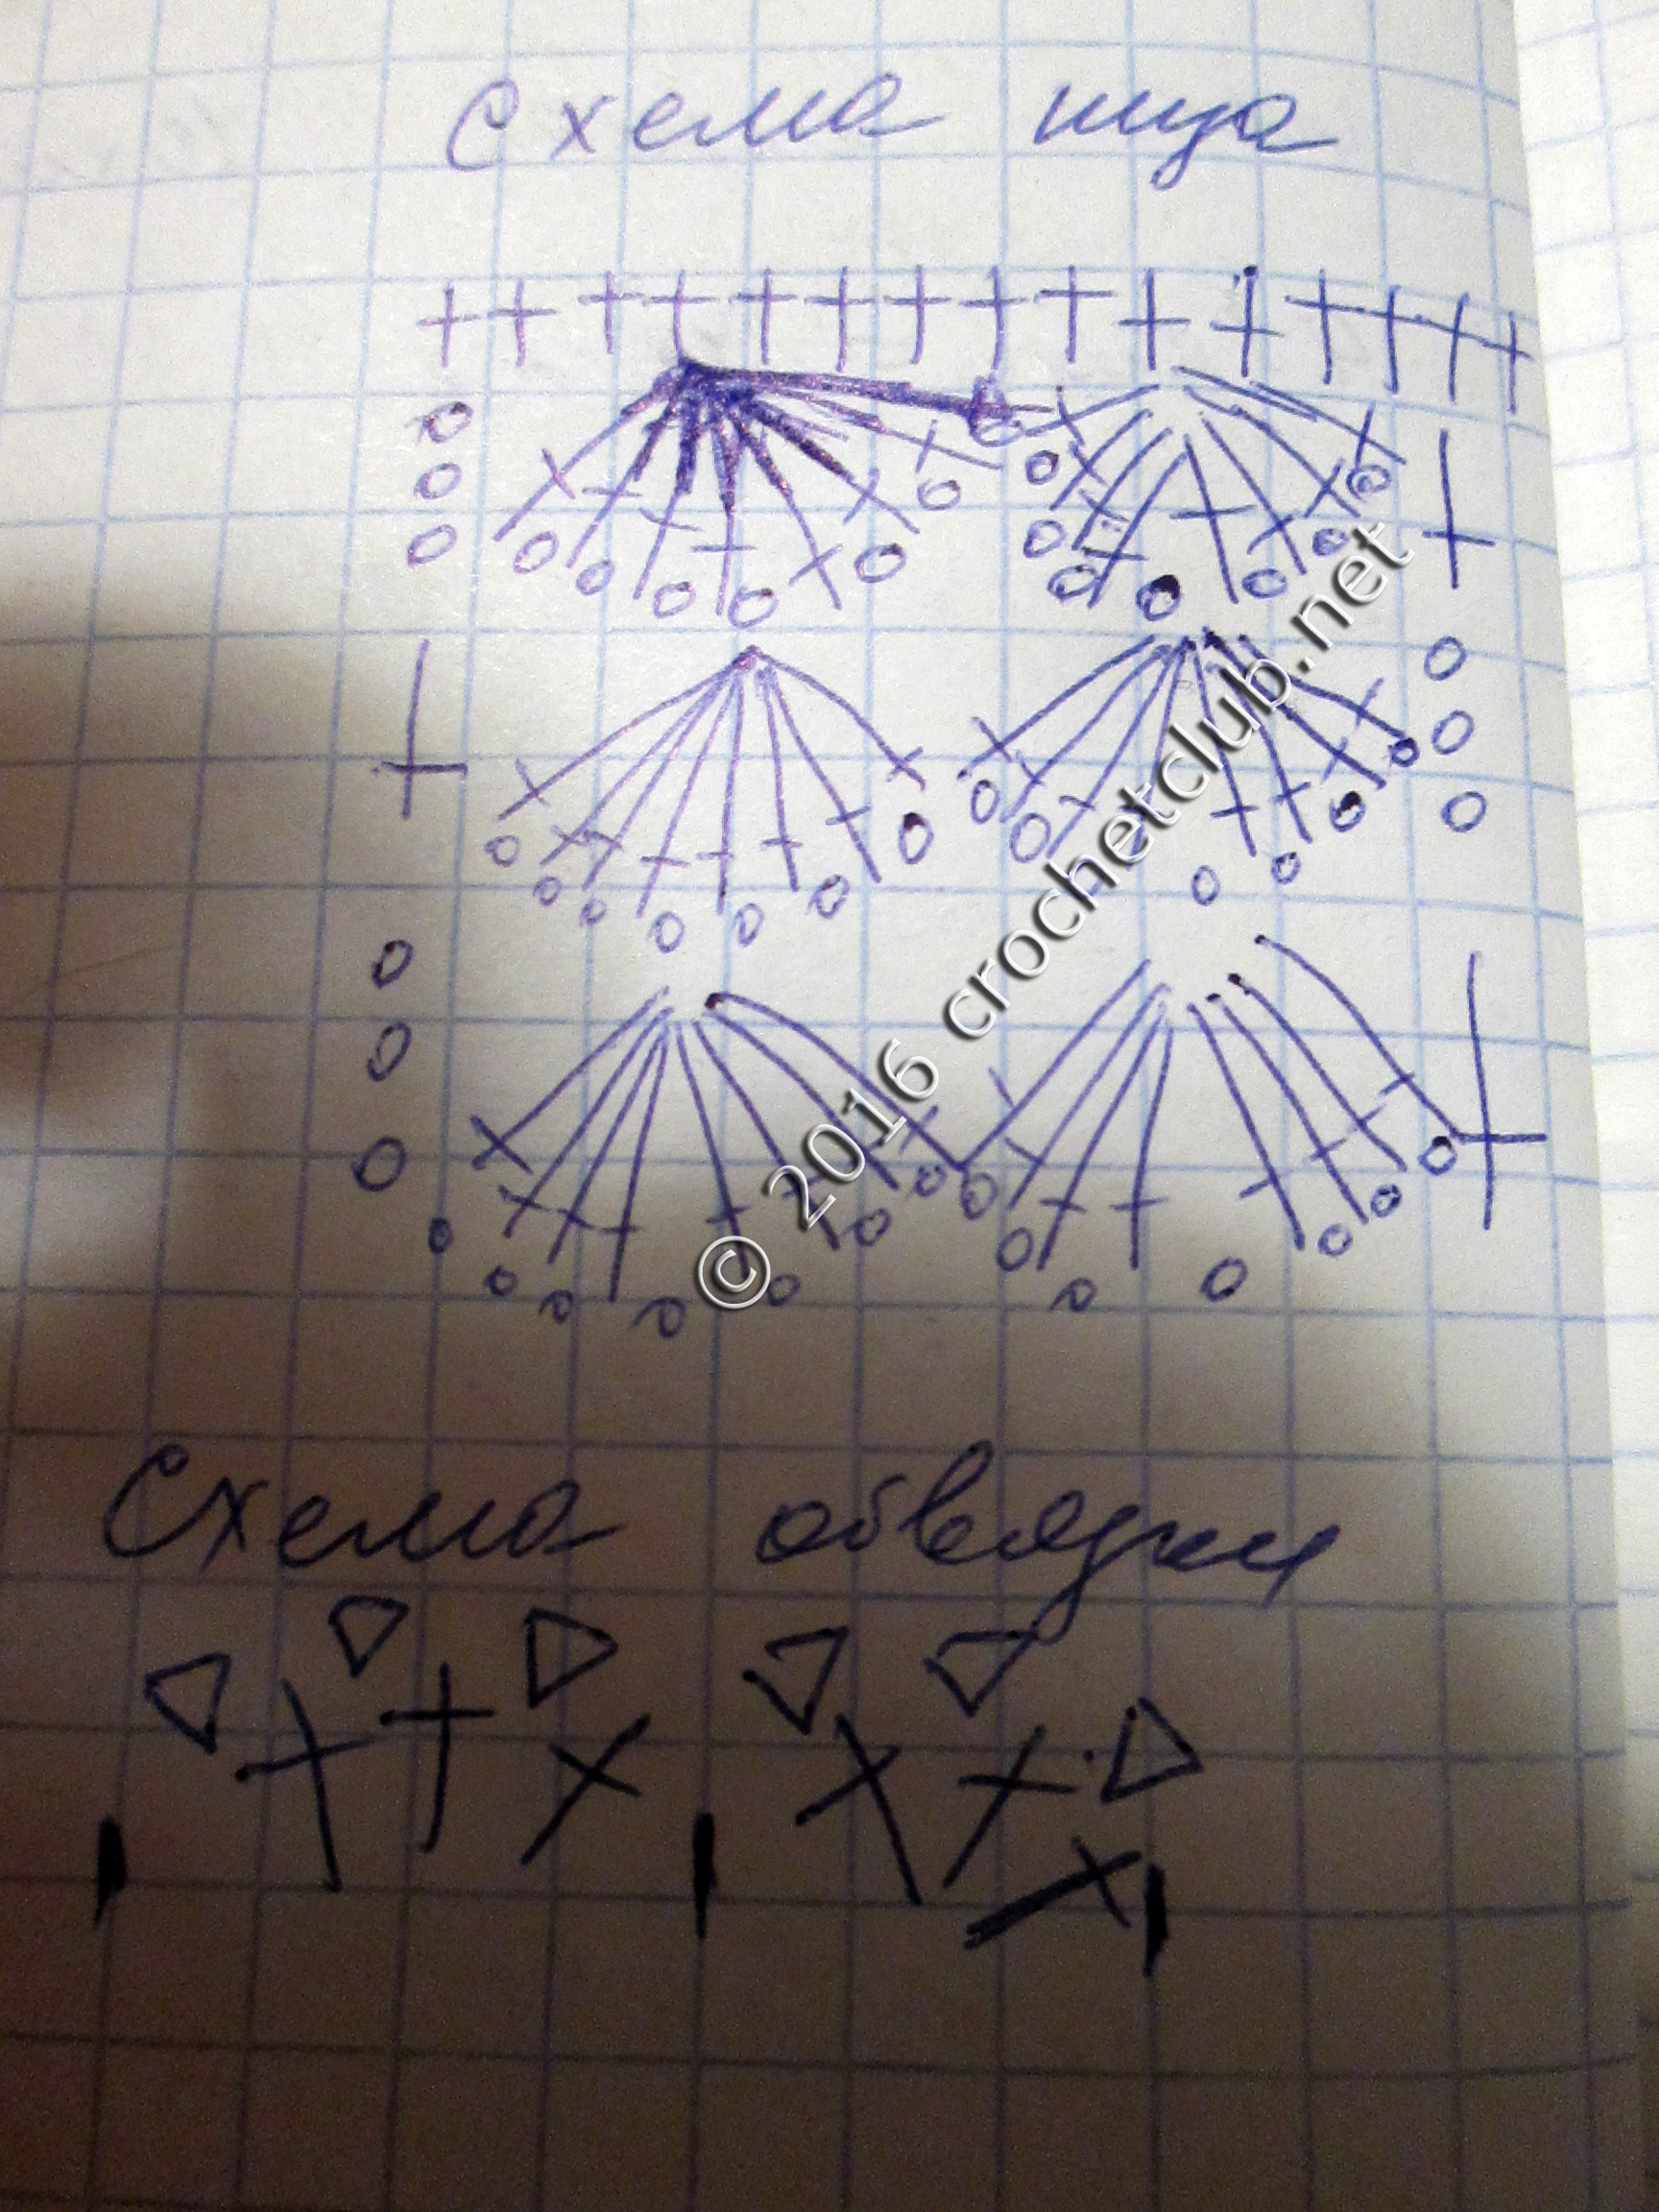 Схема низа
© 2016 crochetclub.net
Схема обвязки